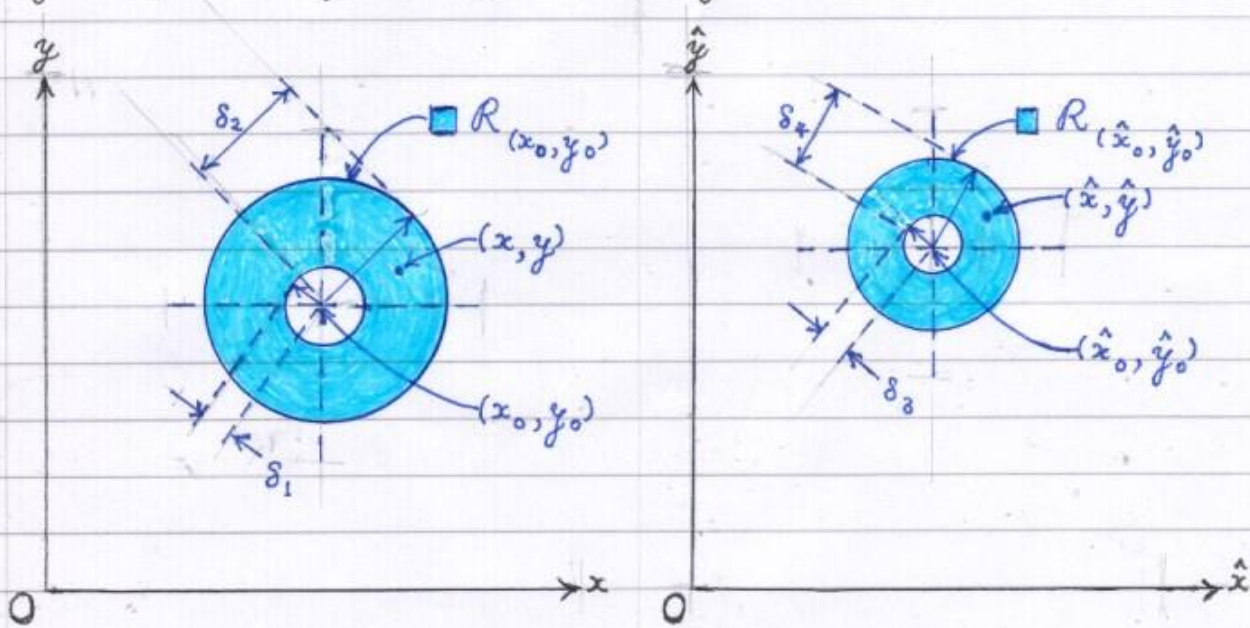 y
δ₂
R₍ₓ₀,ᵧ₀₎
(x, y)
(x₀, y₀)
δ₁
O
x
ŷ
δ₄
R₍ₓ̂₀,ŷ₀₎
(x̂, ŷ)
(x̂₀, ŷ₀)
δ₃
O
x̂